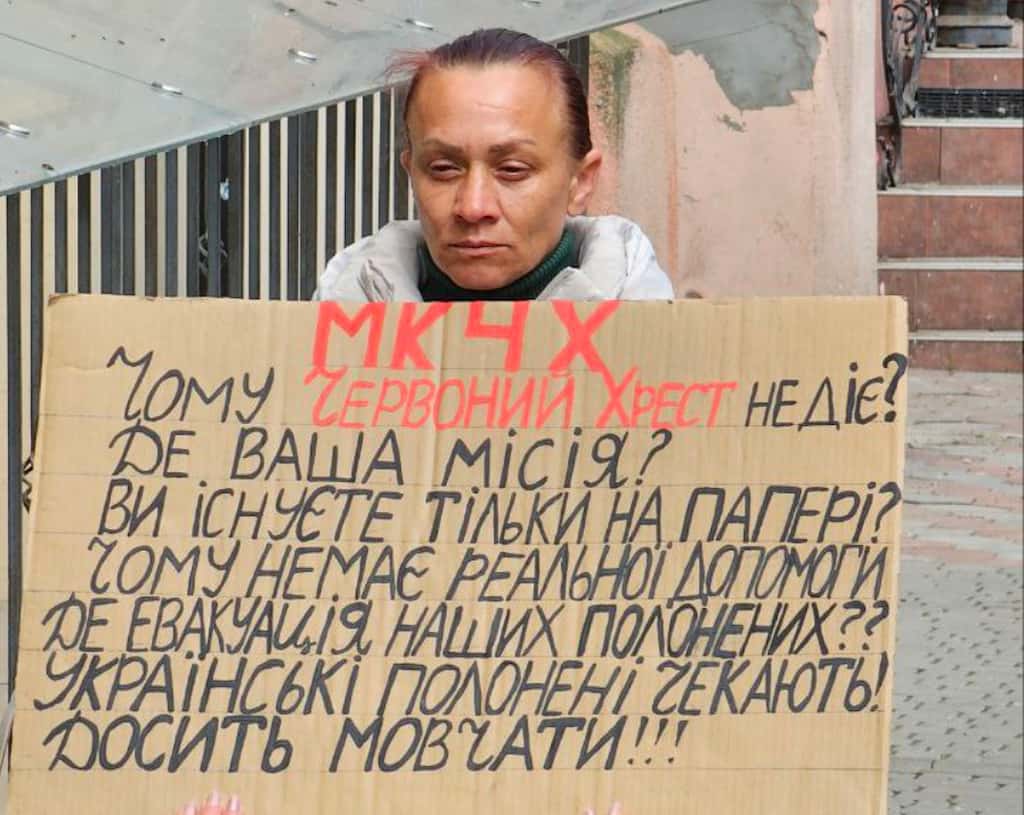 МКЧХ
ЧОМУ ЧЕРВОНИЙ ХРЕСТ НЕ ДІЄ?
ДЕ ВАША МІСІЯ?
ВИ ІСНУЄТЕ ТІЛЬКИ НА ПАПЕРІ?
ЧОМУ НЕМАЄ РЕАЛЬНОЇ ДОПОМОГИ
ДЕ ЕВАКУАЦІЯ НАШИХ ПОЛОНЕНИХ??
УКРАЇНСЬКІ ПОЛОНЕНІ ЧЕКАЮТЬ!
ДОСИТЬ МОВЧАТИ!!!